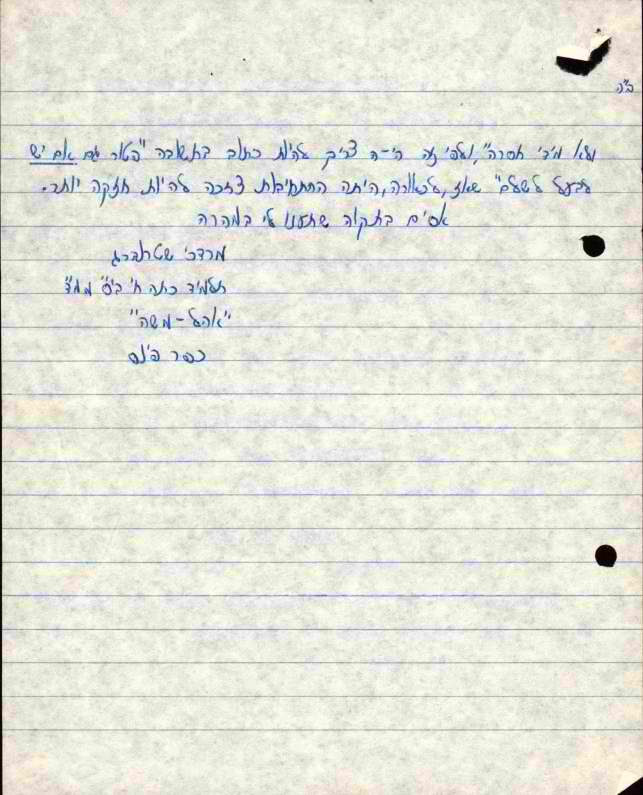 ב"ה
ולא מידי חסרה", ולפי זה הי-ה צריך להיות כתוב בתשובה "פטור גם אם יש
לבעל לשלם" שאז, לכאורה, היתה ההתחייבות צריכה להיות חזקה יותר.
אסיים בתקוה שתענו לי במהרה
מרדכי שטרנברג
תלמיד כתה ח' בי"ס ממ"ד
"אהל-משה"
כפר פינס